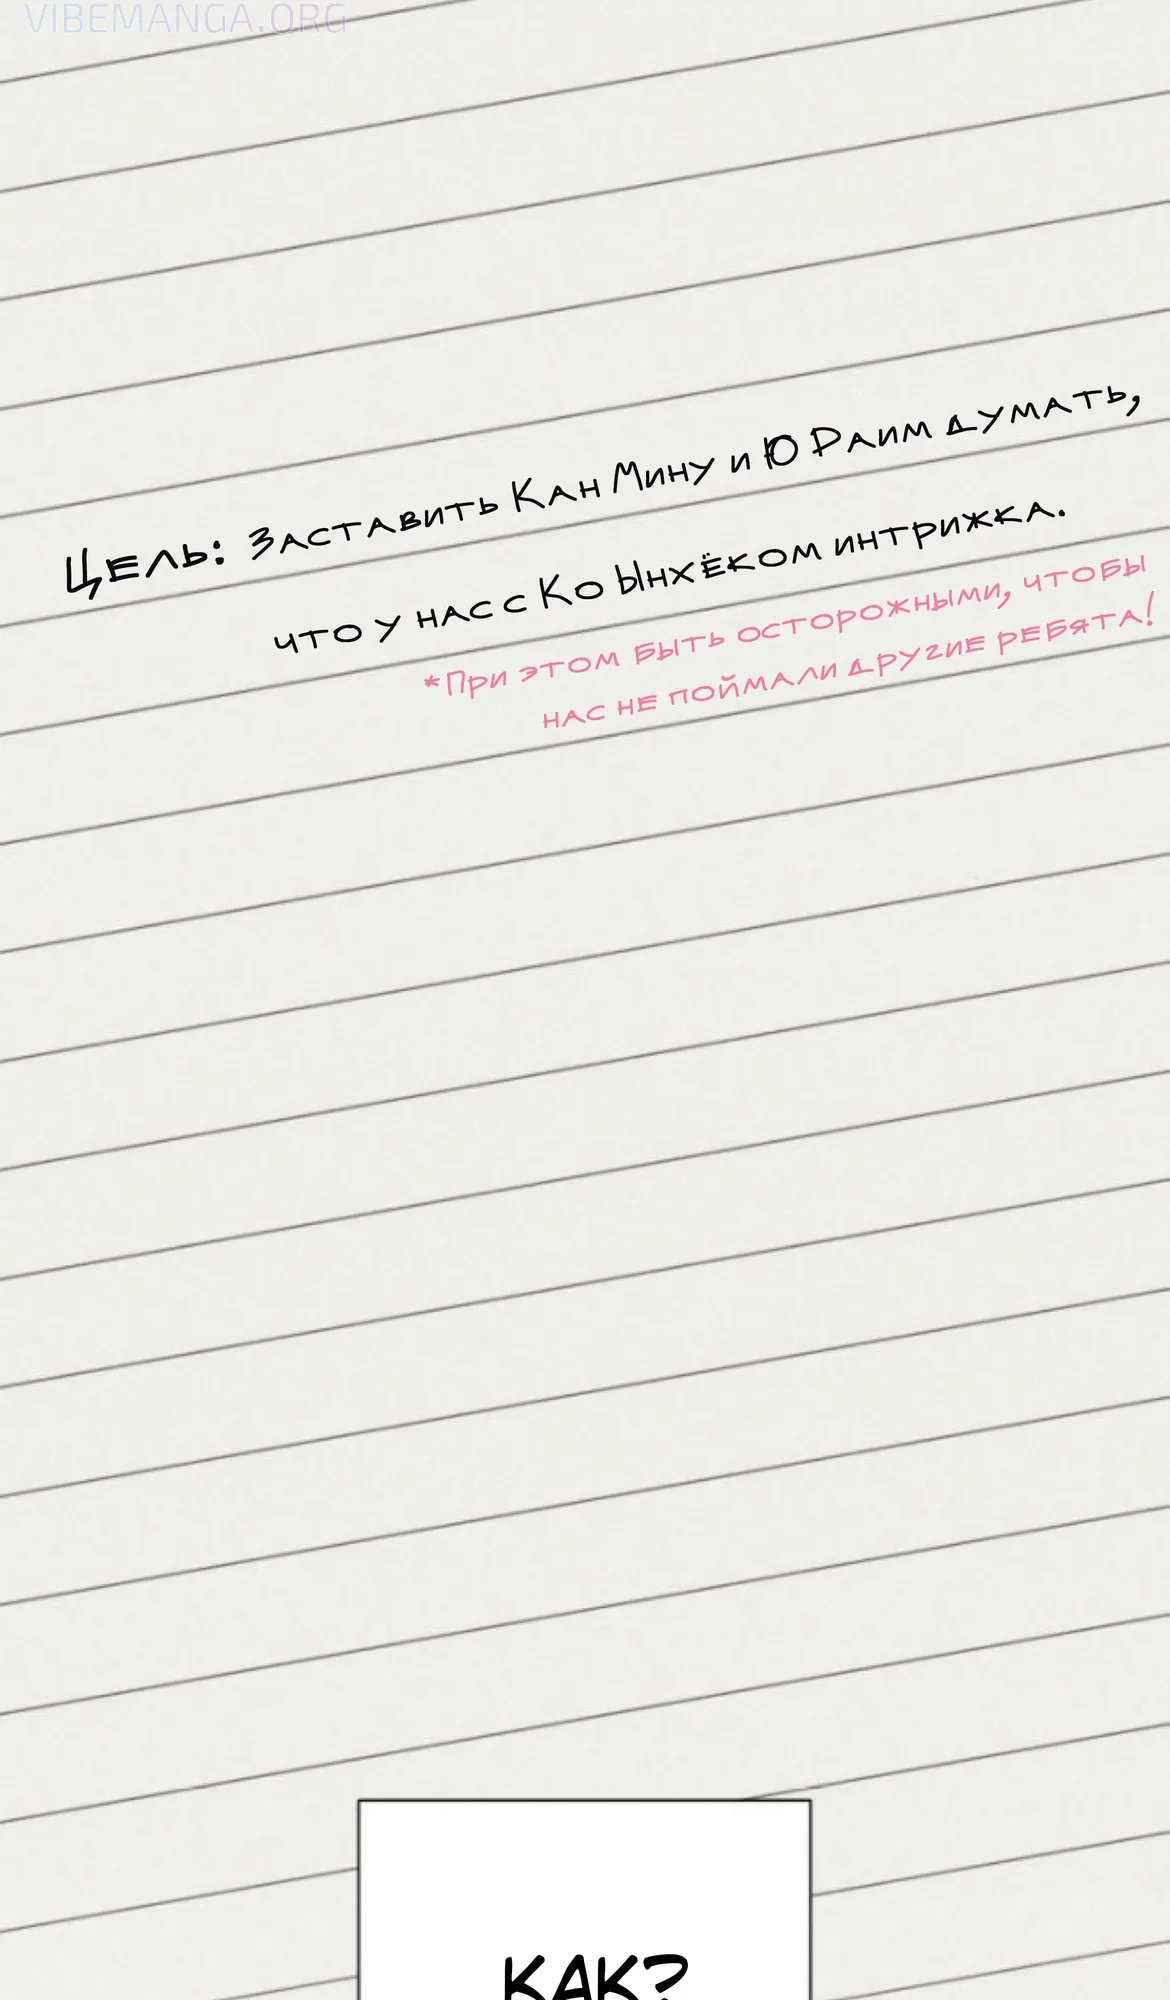 VIBEMANGA.ORG
Цель: Заставить Кан Мину и Ю Раим думать,
что у нас с Ко Ынхёком интрижка.
*При этом быть осторожными, чтобы
нас не поймали другие ребята!
КАК?